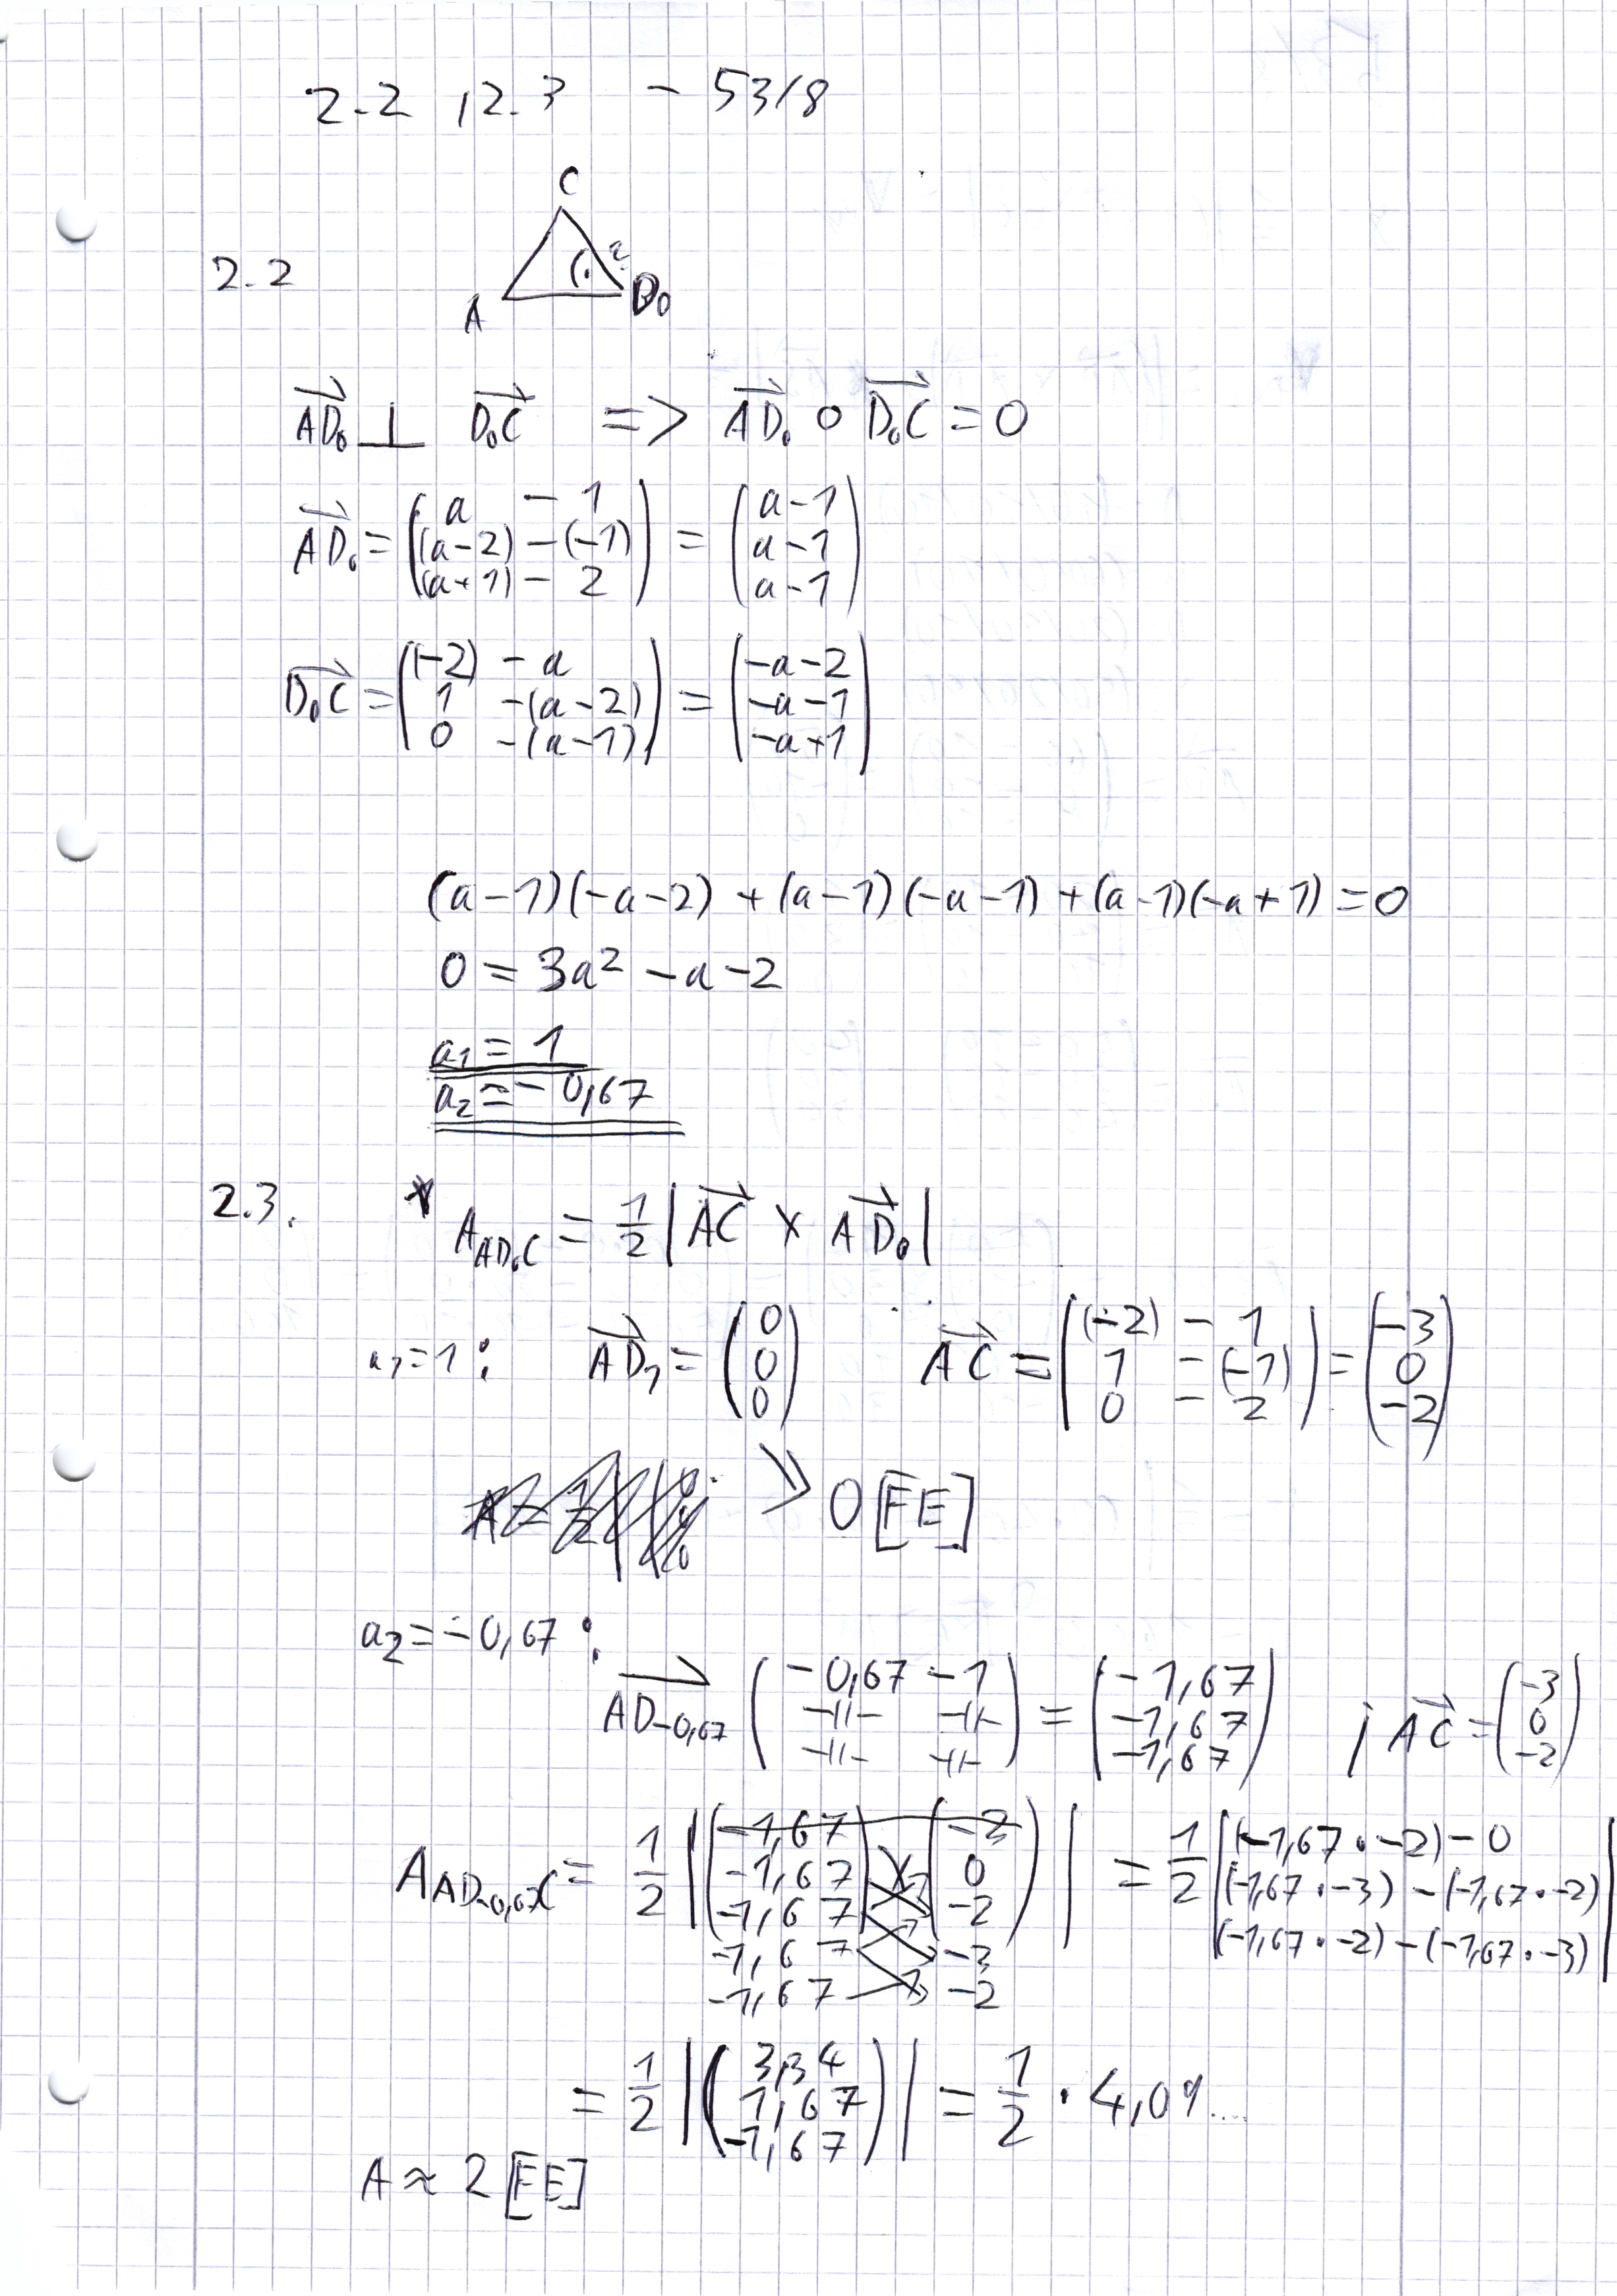 2.2 , 2.3 - 53/8
C
2.2
A D₀
AD₀ ⊥ D₀C => AD₀ ∘ D₀C = 0
AD₀ = (a - 1; (a-2) - (-1); (a+1) - 2) = (a-1; a-1; a-1)
D₀C = ((-2) - a; 1 - (a-2); 0 - (a-1)) = (-a-2; -a-1; -a+1)
(a-1)(-a-2) + (a-1)(-a-1) + (a-1)(-a+1) = 0
0 = 3a² - a - 2
a₁ = 1
a₂ = -0,67
2.3. * A_AD₀C = 1/2 | AC × AD₀ |
a₁=1: AD₁ = (0; 0; 0) AC = ((-2) - 1; 1 - (-1); 0 - 2) = (-3; 0; -2)
0 [FE]
a₂ = -0,67:
AD₋₀,₆₇ (-0,67 - 1; -||- -||-; -||- -||-) = (-1,67; -1,67; -1,67) ; AC = (-3; 0; -2)
A_AD₋₀,₆₇C = 1/2 | (-1,67; -1,67; -1,67) × (-3; 0; -2) | = 1/2 | (-1,67 · -2) - 0; (-1,67 · -3) - (-1,67 · -2); (-1,67 · -2) - (-1,67 · -3) |
-1,67 -3
-1,67 -2
= 1/2 | (3,34; 1,67; -1,67) | = 1/2 · 4,09....
A ≈ 2 [FE]